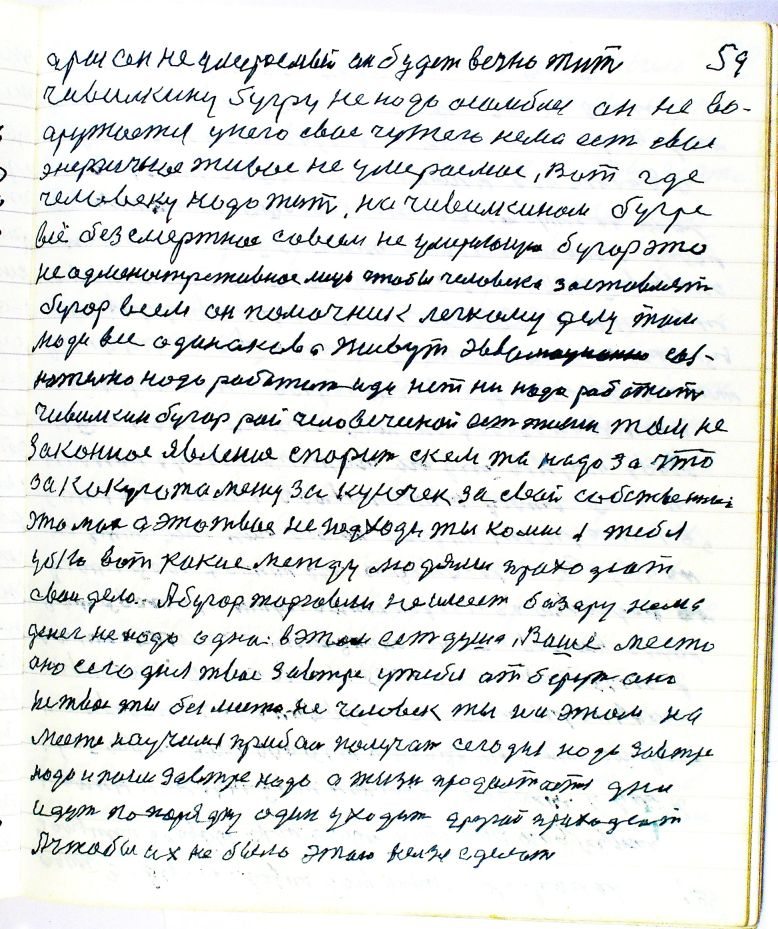 59
он не умираемый он будет вечно жит
чивилкину бугру не надо он не во-
аружается унего свае чужего нема ест свае
энергичное живое не умераемае, Вот где
человеку надо жит, на чивилкином бугре
всё безсмертнае совсем не бугор это
не административнае лицо чтобы человека заставлят
бугор всем он помочник легкому делу там
люди все одинаково живут
надо работат иди нет ни надо работат
Чивилкин бугор рай человеческай ест жизни там не
законнае явление спорит скем та надо за что
за за кусочек за свой собственный
это мое а это твое не подходи ты комне я тебя
убю вот какие между людями проходят
сваи дела. А бугор торговли не имеет базару нема
денег не надо одна в этом ест душа, Ваше место
оно сегодня твое завтре утебя отберут оно
не твое ты без места не человек ты на этом на
месте научился прибыл получат сегодня надо завтре
надо и после завтре надо а жизн продолжается дни
идут по порядку один уходит другой приходит
А чтобы их не было этого нелзя сделат